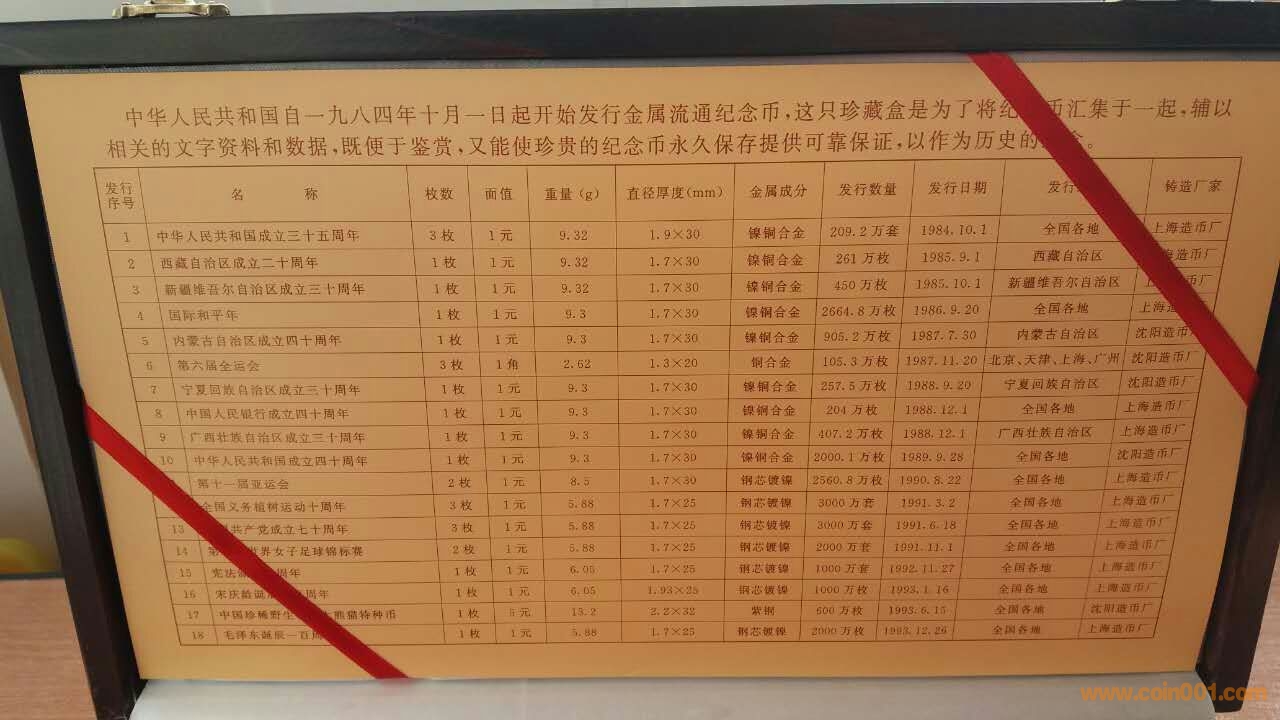 中华人民共和国自一九八四年十月一日起开始发行金属流通纪念币,这只珍藏盒是为了将纪币汇集于一起,辅以
相关的文字资料和数据,既便于鉴赏,又能使珍贵的纪念币永久保存提供可靠保证,以作为历史的。
发行序号 名称 枚数 面值 重量(g) 直径厚度(mm) 金属成分 发行数量 发行日期 发行 铸造厂家
1 中华人民共和国成立三十五周年 3枚 1元 9.32 1.9×30 镍铜合金 209.2万套 1984.10.1 全国各地 上海造币厂
2 西藏自治区成立二十周年 1枚 1元 9.32 1.7×30 镍铜合金 261万枚 1985.9.1 西藏自治区 造币厂
3 新疆维吾尔自治区成立三十周年 1枚 1元 9.32 1.7×30 镍铜合金 450万枚 1985.10.1 新疆维吾尔自治区 上海币厂
4 国际和平年 1枚 1元 9.3 1.7×30 镍铜合金 2664.8万枚 1986.9.20 全国各地 上海厂
5 内蒙古自治区成立四十周年 1枚 1元 9.3 1.7×30 镍铜合金 905.2万枚 1987.7.30 内蒙古自治区 沈阳造币厂
6 第六届全运会 3枚 1角 2.62 1.3×20 铜合金 105.3万枚 1987.11.20 北京、天津、上海、广州 沈阳造币厂
7 宁夏回族自治区成立三十周年 1枚 1元 9.3 1.7×30 镍铜合金 257.5万枚 1988.9.20 宁夏回族自治区 沈阳造币厂
8 中国人民银行成立四十周年 1枚 1元 9.3 1.7×30 镍铜合金 204万枚 1988.12.1 全国各地 上海造币厂
9 广西壮族自治区成立三十周年 1枚 1元 9.3 1.7×30 镍铜合金 407.2万枚 1988.12.1 广西壮族自治区 上海造币厂
10 中华人民共和国成立四十周年 1枚 1元 9.3 1.7×30 镍铜合金 2000.1万枚 1989.9.28 全国各地 沈阳造币厂
第十一届亚运会 2枚 1元 8.5 1.7×30 钢芯镀镍 2560.8万枚 1990.8.22 全国各地 上海造币厂
全国义务植树运动十周年 3枚 1元 5.88 1.7×25 钢芯镀镍 3000万套 1991.3.2 全国各地 上海造币厂
13 共产党成立七十周年 3枚 1元 5.88 1.7×25 钢芯镀镍 3000万套 1991.6.18 全国各地 上海造币厂
14 第世界女子足球锦标赛 2枚 1元 5.88 1.7×25 钢芯镀镍 2000万套 1991.11.1 全国各地 上海造币厂
15 宪法周年 1枚 1元 6.05 1.7×25 钢芯镀镍 1000万套 1992.11.27 全国各地 上海造币厂
16 宋庆龄诞周年 1枚 1元 6.05 1.93×25 钢芯镀镍 1000万枚 1993.1.16 全国各地 上海造币厂
17 中国珍稀野生熊猫特种币 1枚 5元 13.2 2.2×32 紫铜 600万枚 1993.6.15 全国各地 沈阳造币厂
18 毛泽东诞辰一百周 1枚 1元 5.88 1.7×25 钢芯镀镍 2000万枚 1993.12.26 全国各地 上海造币厂
www.coin001.com